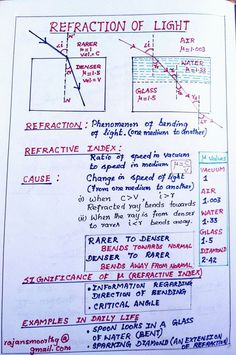 REFRACTION OF LIGHT
RARER
μ = 1
Vel = C
DENSER
μ = 1.5
Vel = V
AIR
μ = 1.003
WATER
μ = 1.33
GLASS
μ = 1.5
REFRACTION : Phenomenon of bending
of light. (one medium to another)
REFRACTIVE INDEX :
Ratio of speed in vacuum
to speed in medium μ = C/V
CAUSE : Change in speed of light
(from one medium to another)
(i) When C > V, i > r
Refracted ray bends towards
(ii) When the ray is from denser
to rarer i < r bends away.
μ Values
VACUUM
1
AIR
1.003
WATER
1.33
GLASS
1.5
DIAMOND
2.42
RARER TO DENSER
BENDS TOWARDS NORMAL
DENSER TO RARER
BENDS AWAY FROM NORMAL
SIGNIFICANCE OF μ (REFRACTIVE INDEX)
• INFORMATION REGARDING
DIRECTION OF BENDING
• CRITICAL ANGLE
EXAMPLES IN DAILY LIFE
• SPOON LOOKS IN A GLASS
OF WATER (BENT)
• SPARKING DIAMOND (AN EXTENSION
OF REFRACTION)
rajansmoorthy@
gmail.com